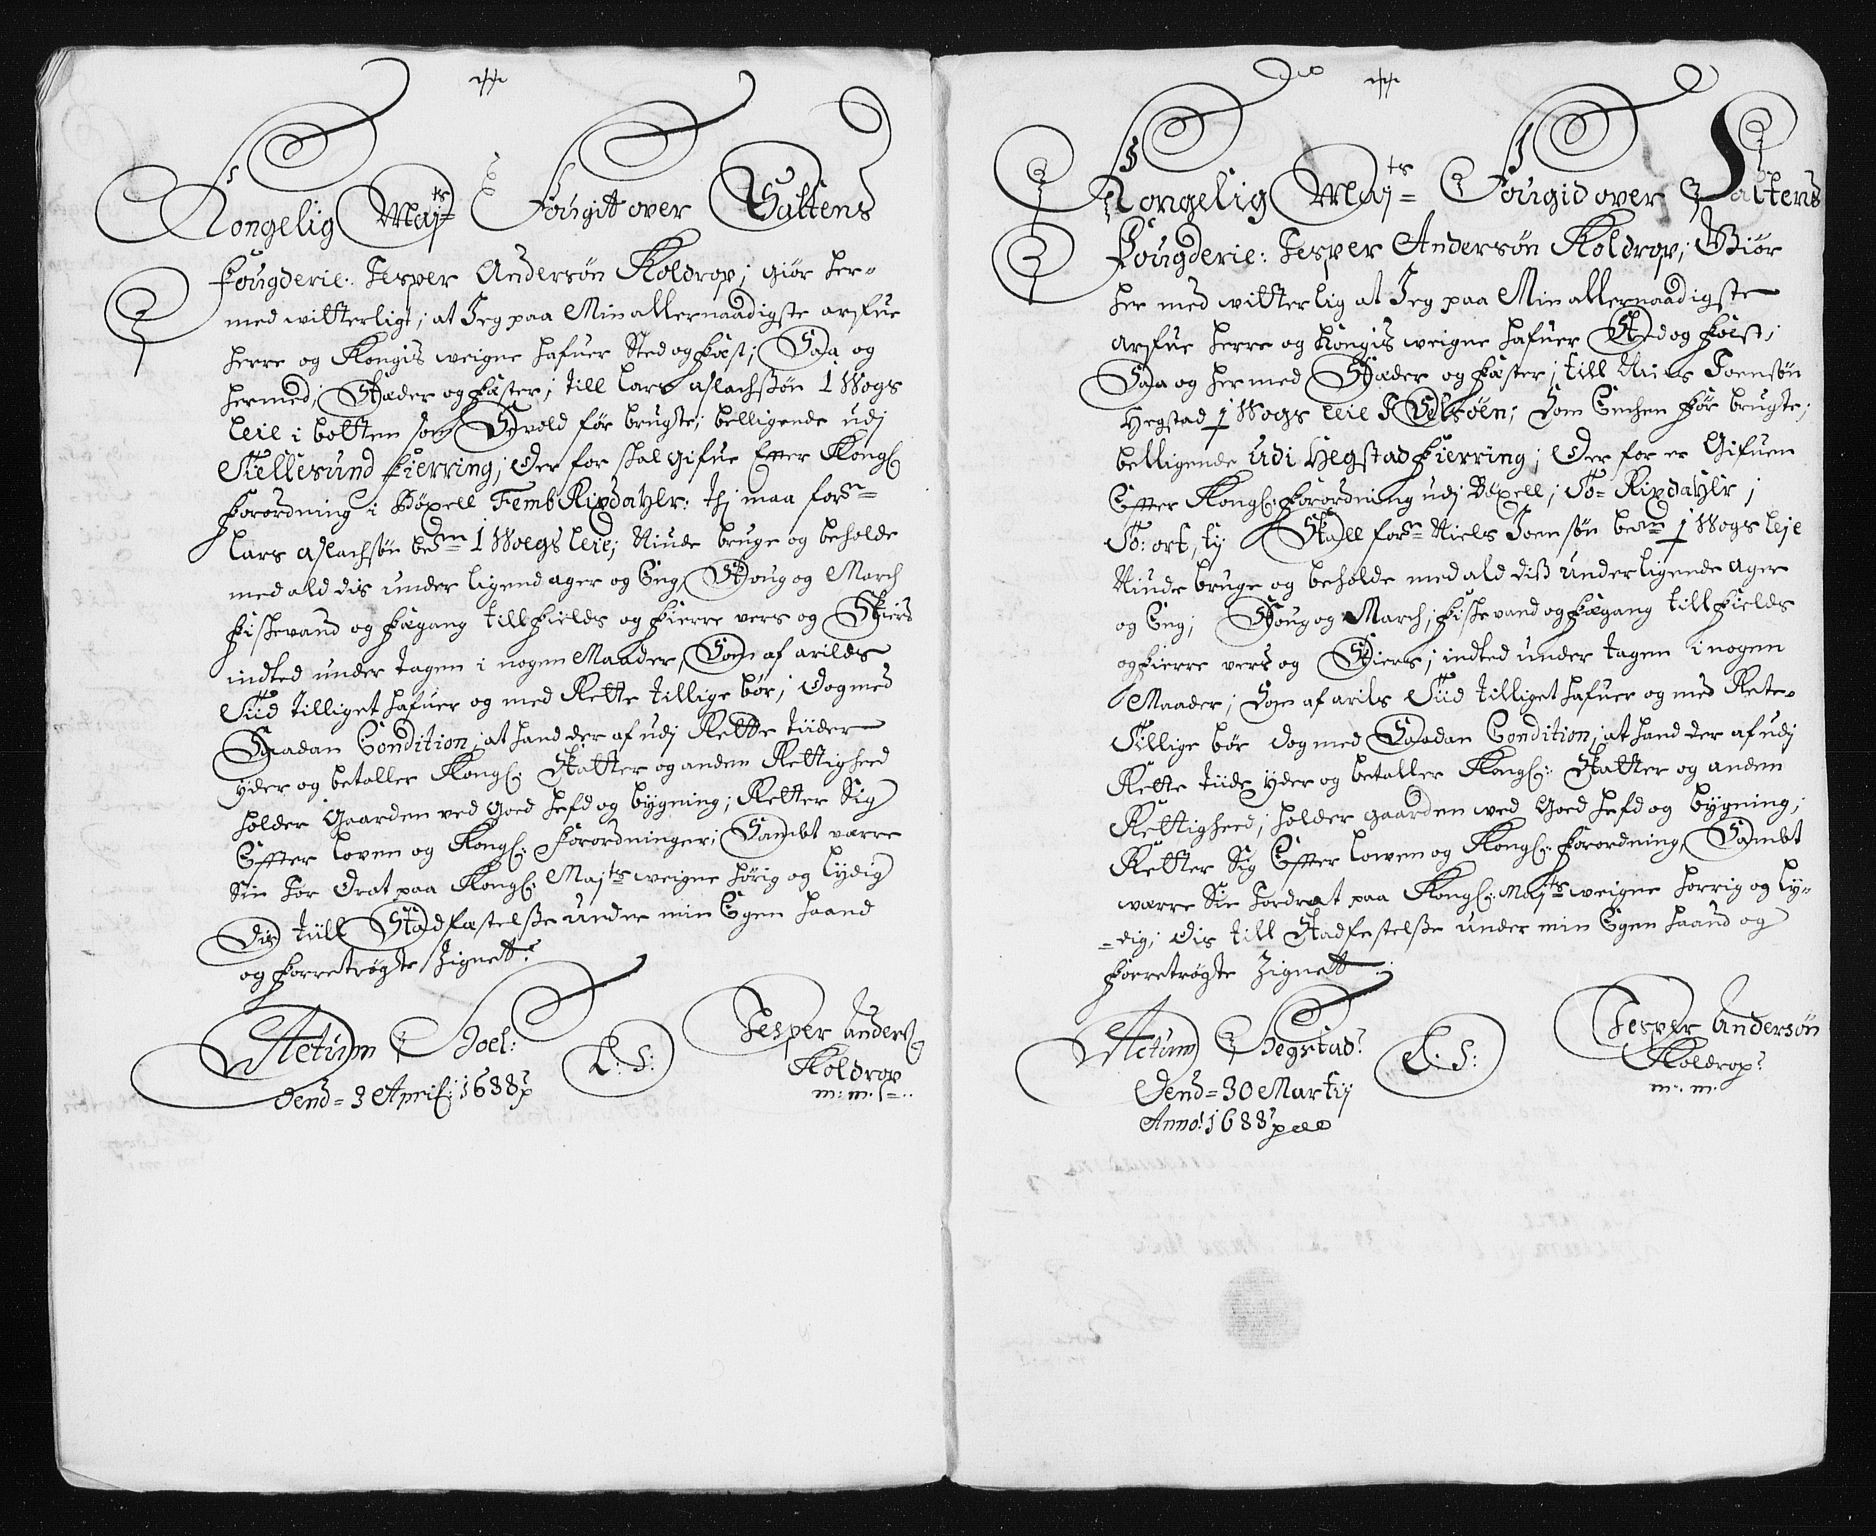 Kongelig Maj:ts Fougit over Saltens
Fougderie: Jesper Andersøn Koldrop; giør her-
med witterligt; at Jeg paa Min allernaadigste arfue
herre og Kongis weigne hafuer Sted og Fæst; Saa og
hermed; Stæder og Fæster; till Lars Aslachsøn 1 Wogs
Leie i botten som Sivold før brugte; belligende udj
Skiellesund Fierring; Der for skal gifue Effter Kongl:
Forordning i Böxell Femb Rixdaylr: thj maa forn:
Lars Aslachsøn bem:te 1 Woegs Leie; Niude bruge og beholde
med ald dis under ligend ager og Eng, Skoug og March
Fiskevand og Fægang till Fields og Fierre vers og Skiers
indted under tagen i nogen Maader, Som af arilds
Tiid tilliget hafuer og med Rette tillige bør; Dog med
Saadan Condition; at hand der af udj Rette tiider
yder og betaller Kongl: Skatter og anden Rettigheed
holder Gaarden ved Goed hefd og bygning; Retter Sig
Effter loven og Kongl: Forordninger; Sambt værre
Sin Jor Drat paa Kongl: Maj:ts weigne hörig og lydig
Dis till Stadfæstelsse under min Egen haand
og Forretrögte Zignett:
Actum Hoel: L: S: Jesper Anders:
Dend= 3 April: 1688 Koldrop
m: m:
Kongelig Maj:ts Fougid over Saltens
Fougderie: Jesper Andersøn Koldrop; Giör
her med witterlig at Jeg paa Min allernaadigste
arfue herre og Kongis weigne hafuer Sted og Fæst;
Saa og hermed Stæder og Fæster; till Niels Joensøn
Hegstad 1 Wogs Leie I Velsöen; Som Enchen før brugte;
belligende udi Hegstad Fierring; Der for er Gifuen
Effter Kongl: Forordning udj Böxell; To= Rixdaylr;
To: ort, ty Skall forn: Niels Joensøn bem: 1 Wogs Leje
Niude bruge og beholde med ald diss underligende Ager
og Eng; Skoug og March; Fiskevand og Fægang till Fields
og Fierre vers og Skiers; indted under tagen i nogen
Maader; Som af arils Tiid tilliget hafuer og med Rete
Tillige bør dog med Saadan Condition; at hand der af udj
Rette tiide yder og betaller Kongl: Skatter og anden
Rettigheed; holder gaarden wed Goed hefd og bygning;
Retter Sig Effter lowen og Kongl: Forordning, Sambt
værre Sin Jordrat paa Kongl: Maj:ts weigne horrig og ly-
=dig; Dis till Stadfestelsse under min Egen haand og
Forretrögte Zignett:
Actum Hegstad: L: S: Jesper Andersøn
Dend= 30 Martij Koldrop:
Anno: 1688 m: m: